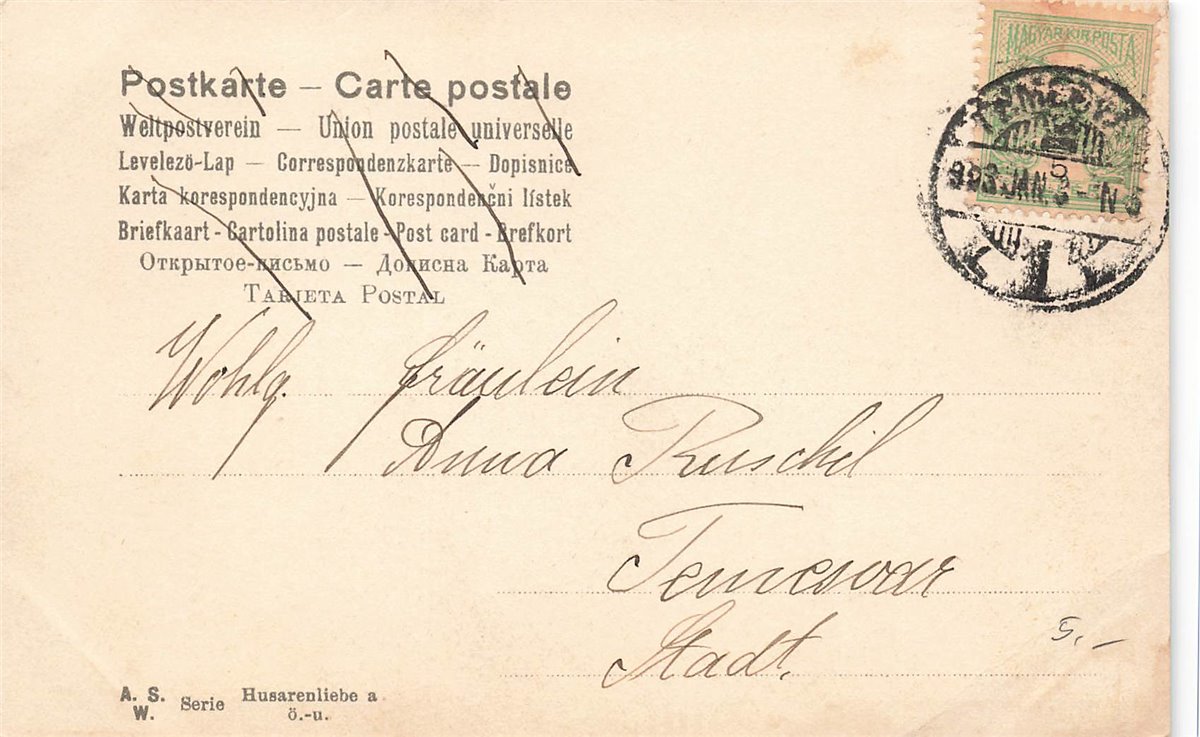 Postkarte – Carte postale
Weltpostverein — Union postale universelle
Levelezö-Lap — Correspondenzkarte — Dopisnice
Karta korespondencyjna — Korespondenčni lístek
Briefkaart - Cartolina postale - Post card - Brefkort
Открытое-письмо — Дописна Карта
TARJETA POSTAL
MAGYAR KIR. POSTA
JAN. 3
Wohlg. Fräulein
Anna Ruschil
Temesvar
Stadt.
5.-
A. S. W. Serie Husarenliebe a
ö.-u.